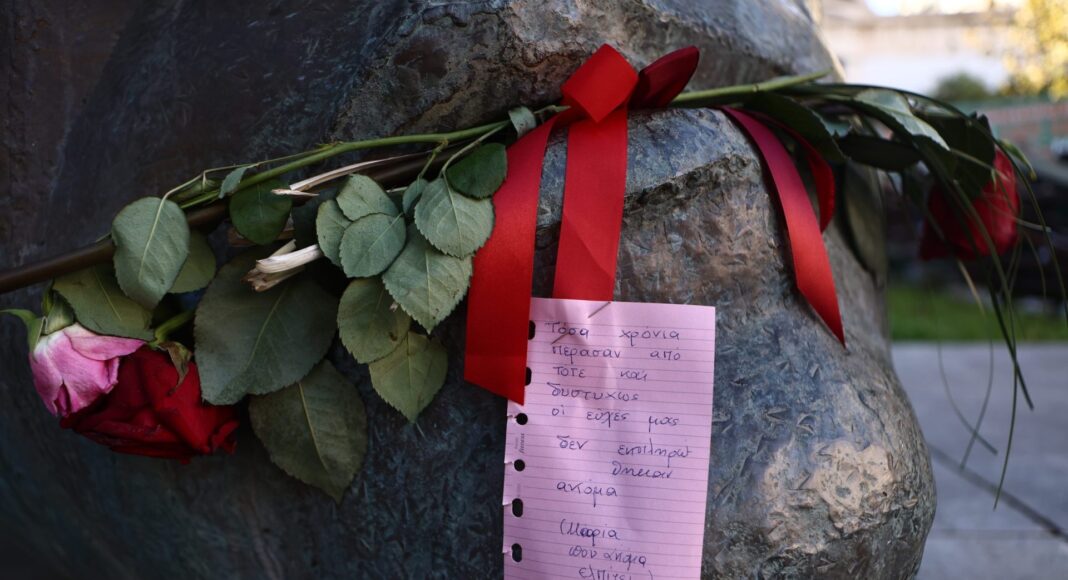 Τόσα χρόνια
περασαν απο
τοτε και
δυστυχως
οι ευχες μας
δεν εκπληρώ
θηκαν
ακόμα
(Μαρία
που ακόμα
ελπίζει)